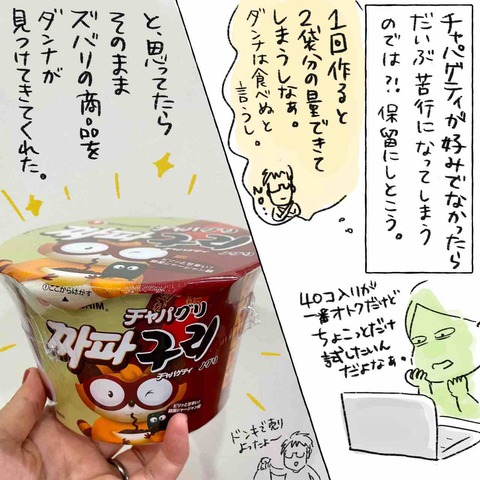 チャパゲティが好みでなかったら
だいぶ苦行になってしまう
のでは?!保留にしとこう。
1回作ると
2袋分の量できて
しまうしなぁ。
ダンナは食べぬと
言うし。
NO.
40コ入りが
一番オトクだけど
ちょこっとだけ
試したいん
だよなぁ。
と、思ってたら
そのまま
ズバリの商品を
ダンナが
見つけてきてくれた。
ここからはがす
チャパグリ
짜파구리
チャパゲティ
ノグリ
ドンキで売り
よったよ〜